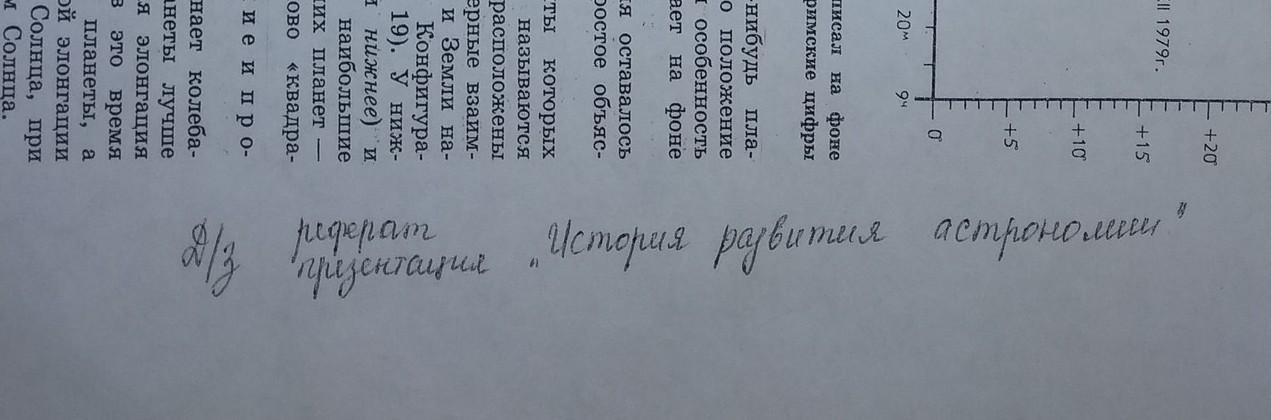 II 1979г.
+20°
+15°
+10°
+5°
0°
20м
9ч
писал на фоне
римские цифры
-нибудь пла-
о положение
особенность
ает на фоне
я оставалось
ростое объяс-
ты которых
называются
расположены
ерные взаим-
и Земли на-
Конфигура-
19). У ниж-
нижнее) и
наибольшие
их планет —
ово «квадра-
и е и п р о-
нает колеба-
анеты лучше
я элонгация
в это время
планеты, а
ой элонгации
Солнца, при
м Солнца.
Д/з реферат
презентация „История развития астрономии"